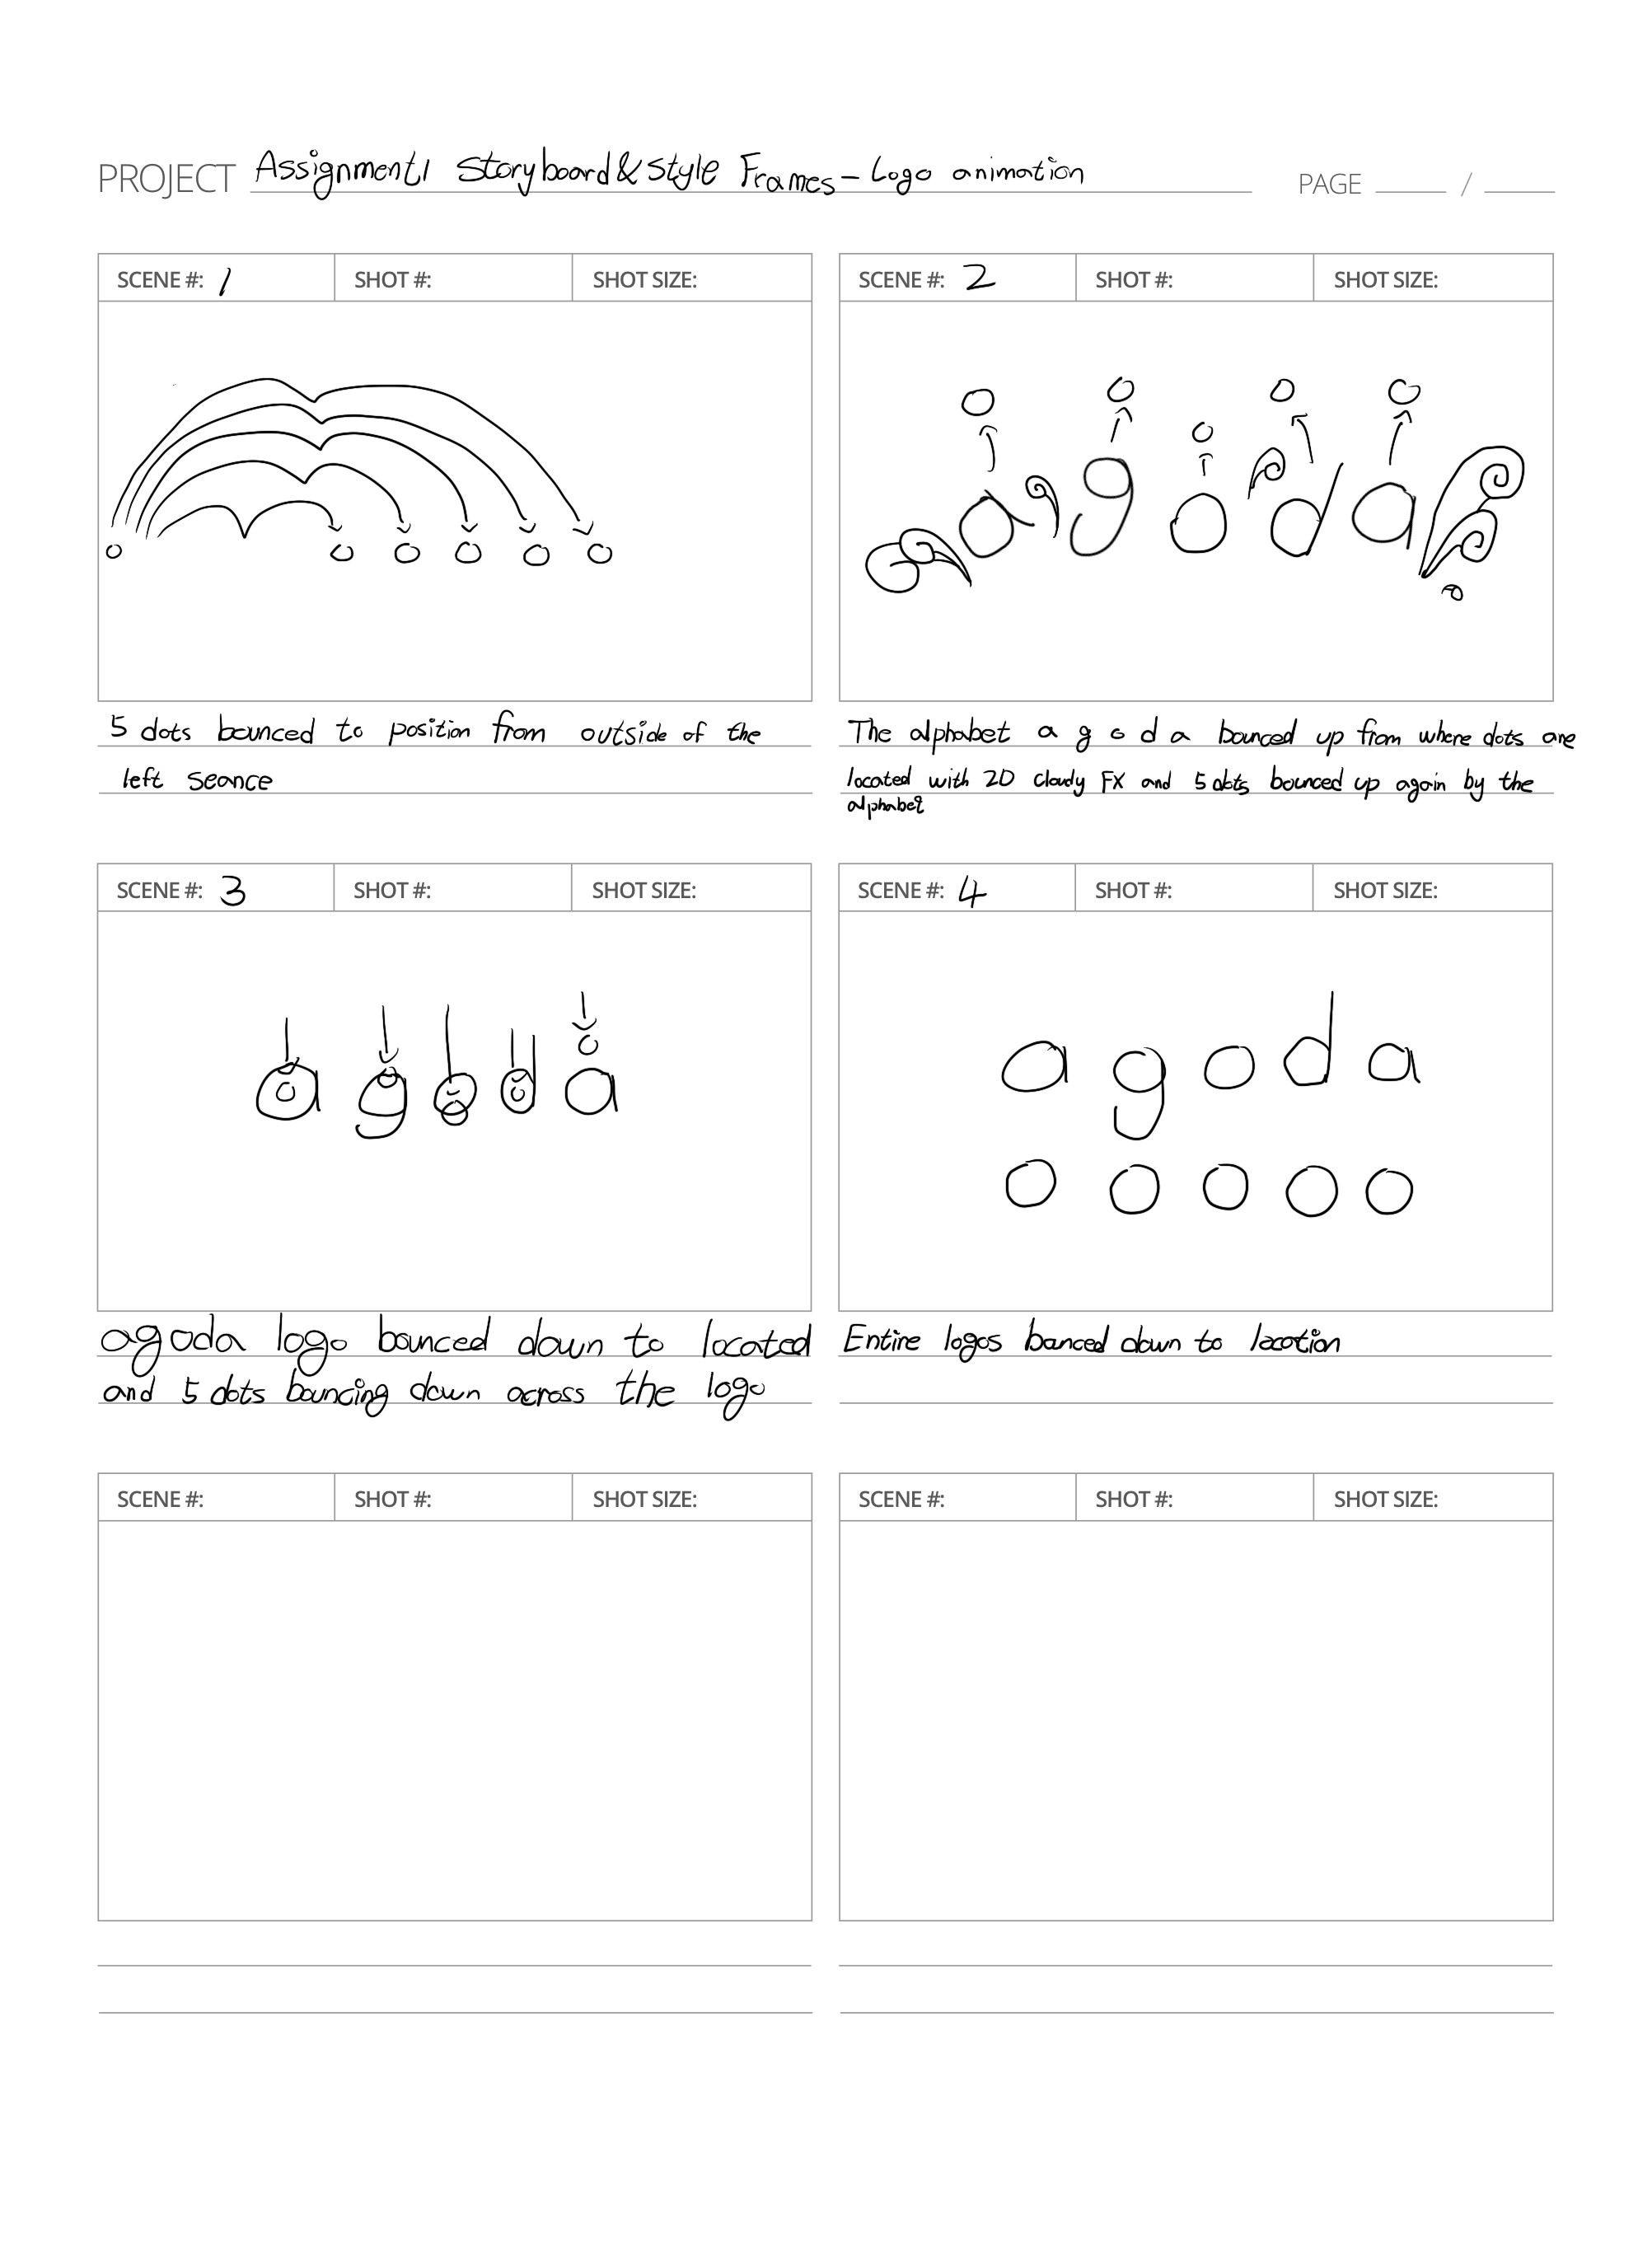 PROJECT Assignment1 Storyboard & Style Frames - Logo animation PAGE /
SCENE #: 1 SHOT #: SHOT SIZE:
5 dots bounced to position from outside of the
left seance
SCENE #: 2 SHOT #: SHOT SIZE:
a g o d a
The alphabet a g o d a bounced up from where dots are
located with 2D cloudy FX and 5 dots bounced up again by the
alphabet
SCENE #: 3 SHOT #: SHOT SIZE:
a g o d a
agoda logo bounced down to located
and 5 dots bouncing down across the logo
SCENE #: 4 SHOT #: SHOT SIZE:
a g o d a
Entire logos banced down to location
SCENE #: SHOT #: SHOT SIZE:
SCENE #: SHOT #: SHOT SIZE: